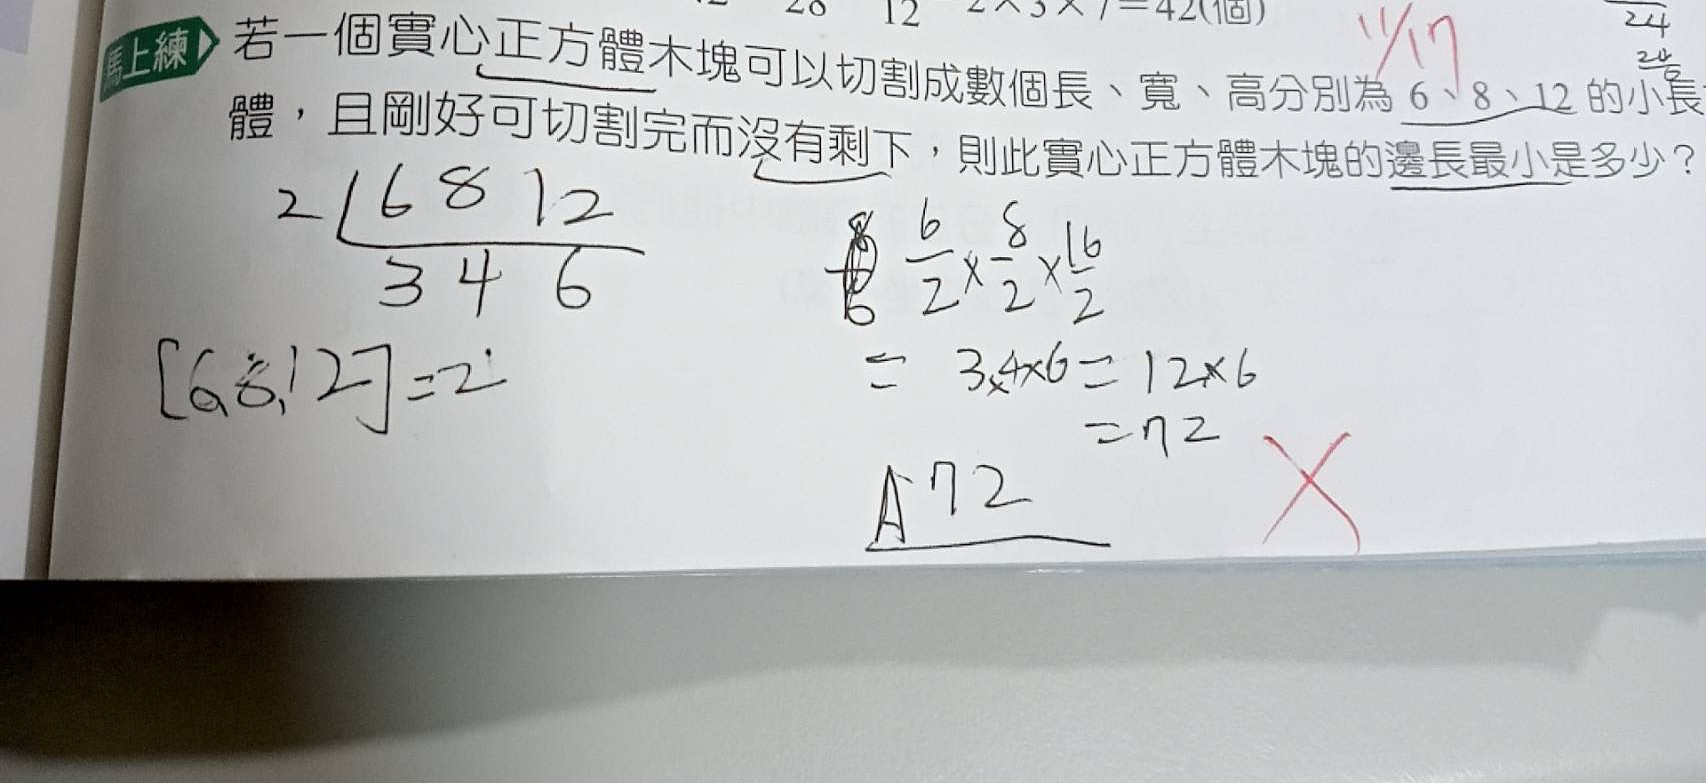 12 2×3×7=42(個)
11/17
24
馬上練 若一個實心正方體木塊可以切割成數個長、寬、高分別為 6、8、12 的小長
體，且剛好可切割完而沒有剩下，則此實心正方體木塊的邊長最小是多少？
2 6 8 12
3 4 6
[6,8,12]=2
6/2×8/2×16/2
= 3×4×6=12×6
=72
A 72